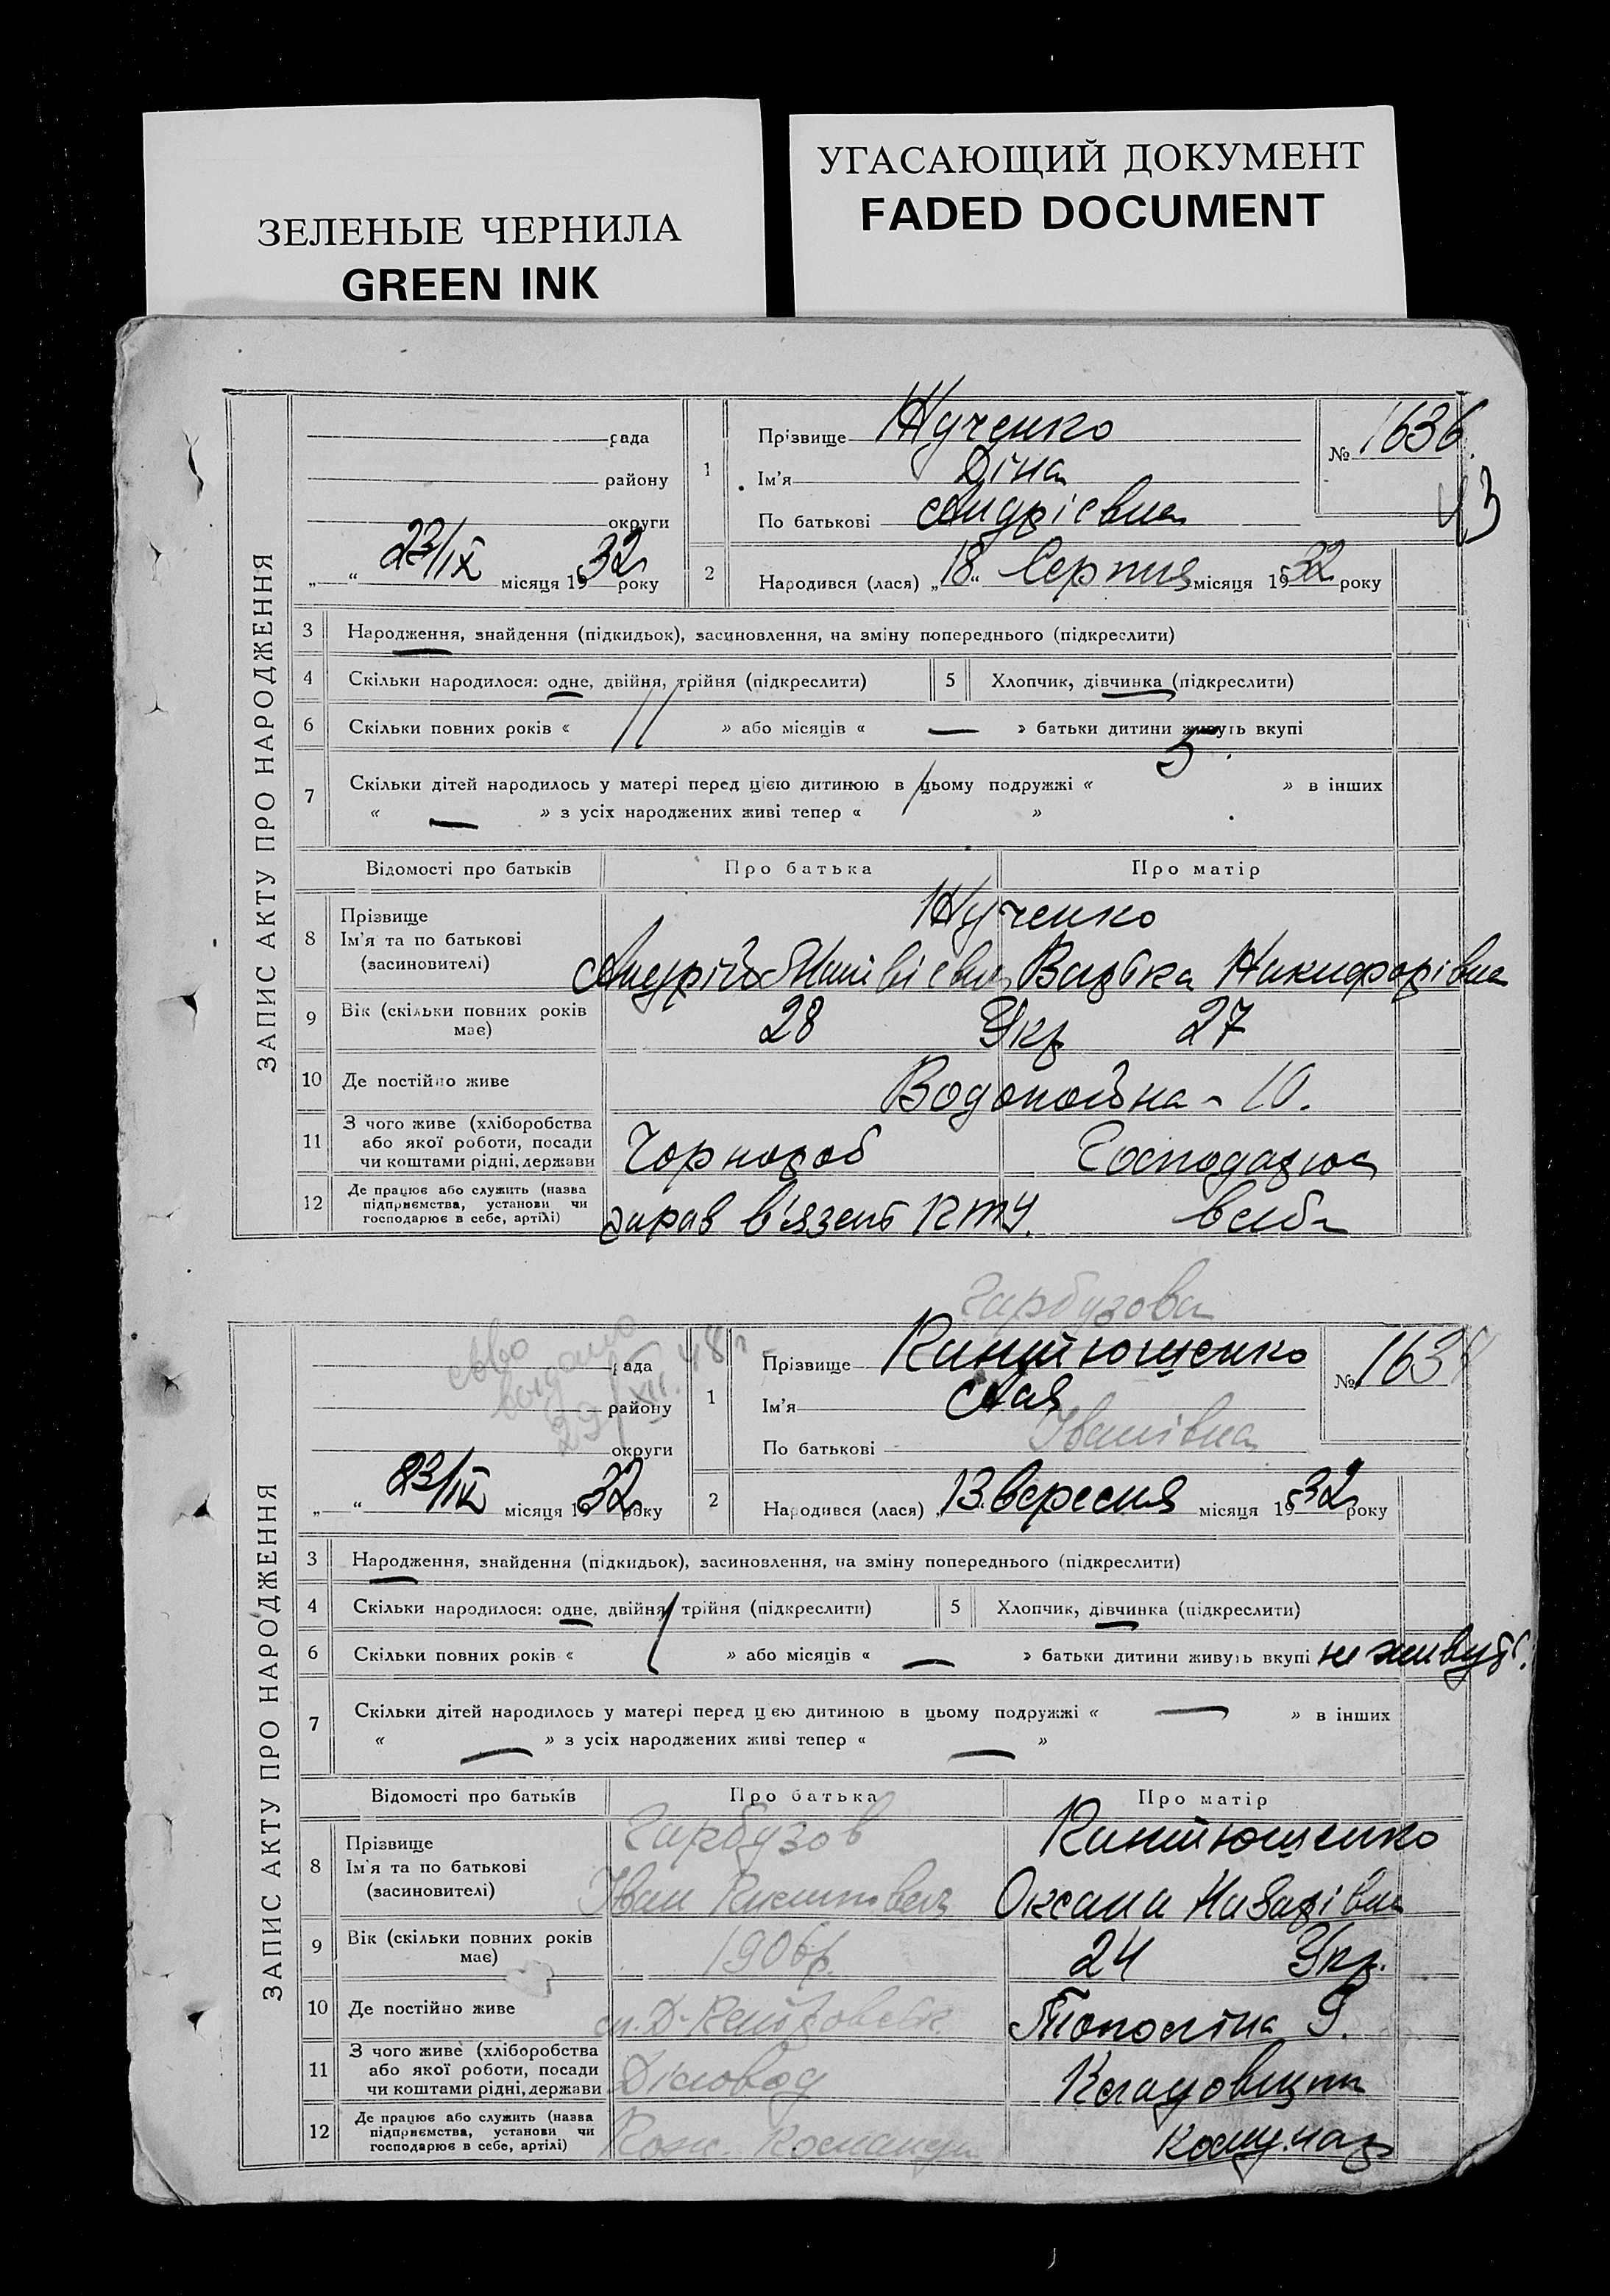 ЗЕЛЕНЫЕ ЧЕРНИЛА
GREEN INK
УГАСАЮЩИЙ ДОКУМЕНТ
FADED DOCUMENT
ЗАПИС АКТУ ПРО НАРОДЖЕННЯ
рада
району
округи
„ “ 23/IX місяця 1932 року
1
Прізвище Жученко
Ім'я Діна
По батькові Андрієвна
№ 1636.
43
2
Народився (лася) „18“ Серпня місяця 1932 року
3 Народження, знайдення (підкидьок), засиновлення, на зміну попереднього (підкреслити)
4 Скільки народилося: одне, двійня, трійня (підкреслити)
5 Хлопчик, дівчинка (підкреслити)
6 Скільки повних років « » або місяців « — » батьки дитини живуть вкупі
7 Скільки дітей народилось у матері перед цією дитиною в цьому подружжі « » в інших
« — » з усіх народжених живі тепер « »
Відомості про батьків Про батька Про матір
8 Прізвище
Ім'я та по батькові
(засиновителі)
Жученко
Андрій Варька Никифорівна
9 Вік (скільки повних років має) 28 Укр 27
10 Де постійно живе Водопойна - 10.
11 З чого живе (хліборобства або якої роботи, посади чи коштами рідні, держави Чорнороб Господарює
12 Де працює або служить (назва підприємства, установи чи господарює в себе, артілі)
в'язень КТУ. в себе
ЗАПИС АКТУ ПРО НАРОДЖЕННЯ
Гарбузова
рада
району
округи
видано 29/XII. 48 г
„ “ 23/IX місяця 1932 року
1
Прізвище
Ім'я Ая
По батькові Іванівна
№ 163
2
Народився (лася) „13 вересня місяця 1932 року
3 Народження, знайдення (підкидьок), засиновлення, на зміну попереднього (підкреслити)
4 Скільки народилося: одне, двійня, трійня (підкреслити)
5 Хлопчик, дівчинка (підкреслити)
6 Скільки повних років « » або місяців « — » батьки дитини живуть вкупі не живуть.
7 Скільки дітей народилось у матері перед цією дитиною в цьому подружжі « — » в інших
« — » з усіх народжених живі тепер « — »
Відомості про батьків Про батька Про матір
8 Прізвище
Ім'я та по батькові
(засиновителі)
Гарбузов
Іван Оксана Назарівна
9 Вік (скільки повних років має) 1906р. 24 Укр.
10 Де постійно живе
11 З чого живе (хліборобства або якої роботи, посади чи коштами рідні, держави Діловод Кладовщик
12 Де працює або служить (назва підприємства, установи чи господарює в себе, артілі)